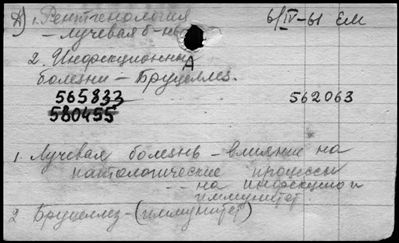 Д) 1. Рентгенология 6/IV-61 ЕМ
– лучевая б-нь
2. Инфекционны А
болезни – Бруцеллез.
565833 562063
580455
1. Лучевая болезнь – влияние на
патологические процессы
– на инфекцию и
иммунитет.
2 Бруцеллез – (иммунитет)